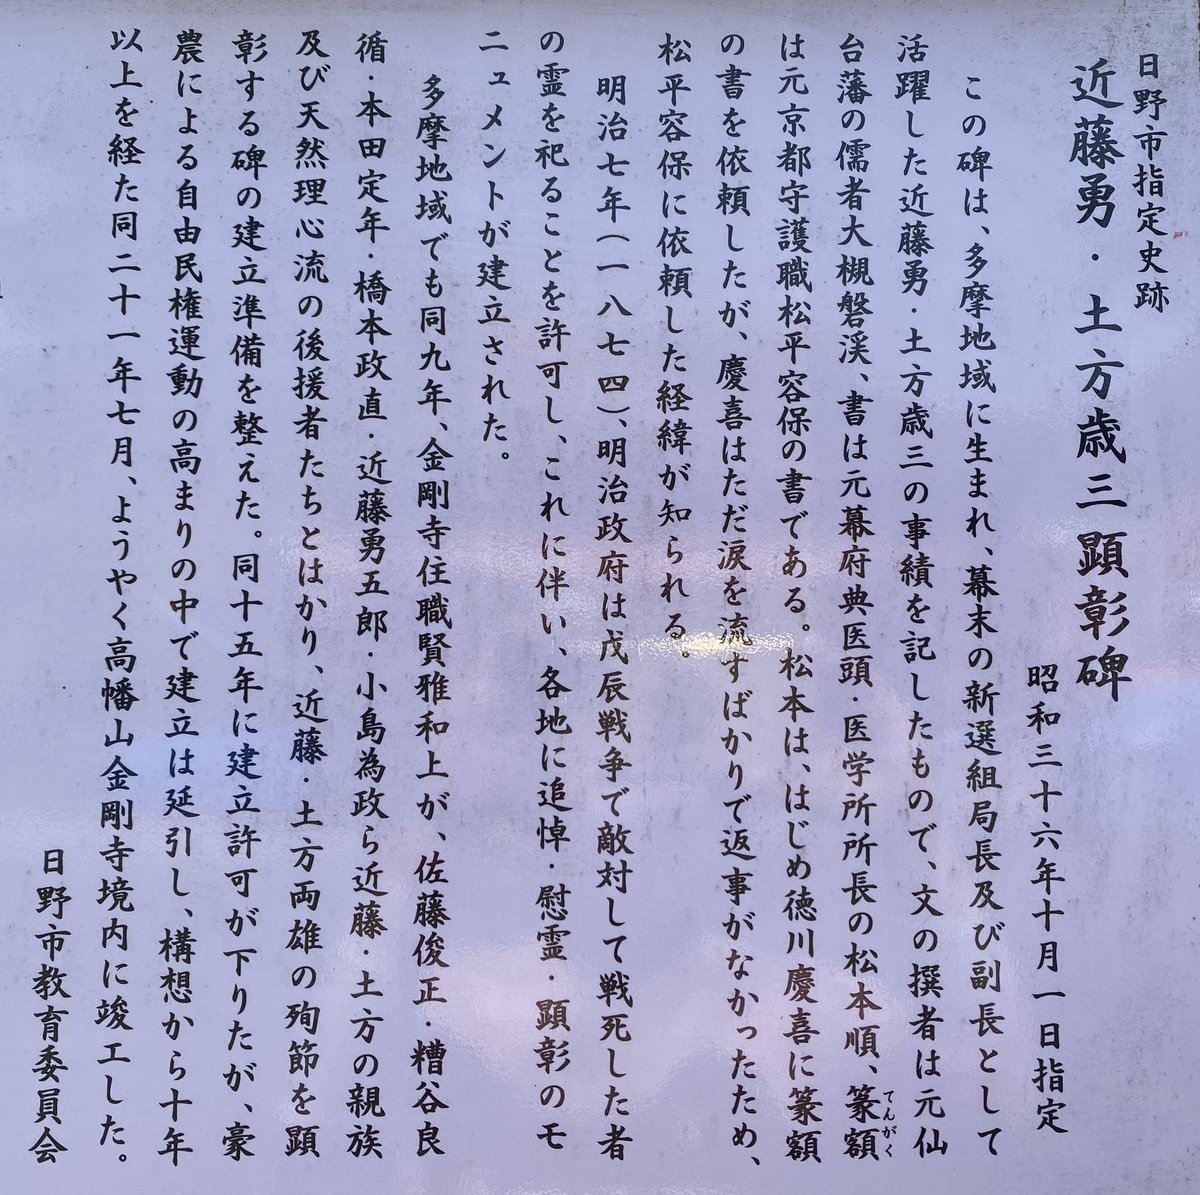 日野市指定史跡
近藤勇・土方歳三顕彰碑
昭和三十六年十月一日指定
この碑は、多摩地域に生まれ、幕末の新選組局長及び副長として
活躍した近藤勇・土方歳三の事績を記したもので、文の撰者は元仙
台藩の儒者大槻磐渓、書は元幕府典医頭・医学所所長の松本順、篆額
てんがく
は元京都守護職松平容保の書である。松本は、はじめ徳川慶喜に篆額
の書を依頼したが、慶喜はただ涙を流すばかりで返事がなかったため、
松平容保に依頼した経緯が知られる。
明治七年(一八七四)、明治政府は戊辰戦争で敵対して戦死した者
の霊を祀ることを許可し、これに伴い、各地に追悼・慰霊・顕彰のモ
ニュメントが建立された。
多摩地域でも同九年、金剛寺住職賢雅和上が、佐藤俊正・糟谷良
循・本田定年・橋本政直・近藤勇五郎・小島為政ら近藤・土方の親族
及び天然理心流の後援者たちとはかり、近藤・土方両雄の殉節を顕
彰する碑の建立準備を整えた。同十五年に建立許可が下りたが、豪
農による自由民権運動の高まりの中で建立は延引し、構想から十年
以上を経た同二十一年七月、ようやく高幡山金剛寺境内に竣工した。
日野市教育委員会